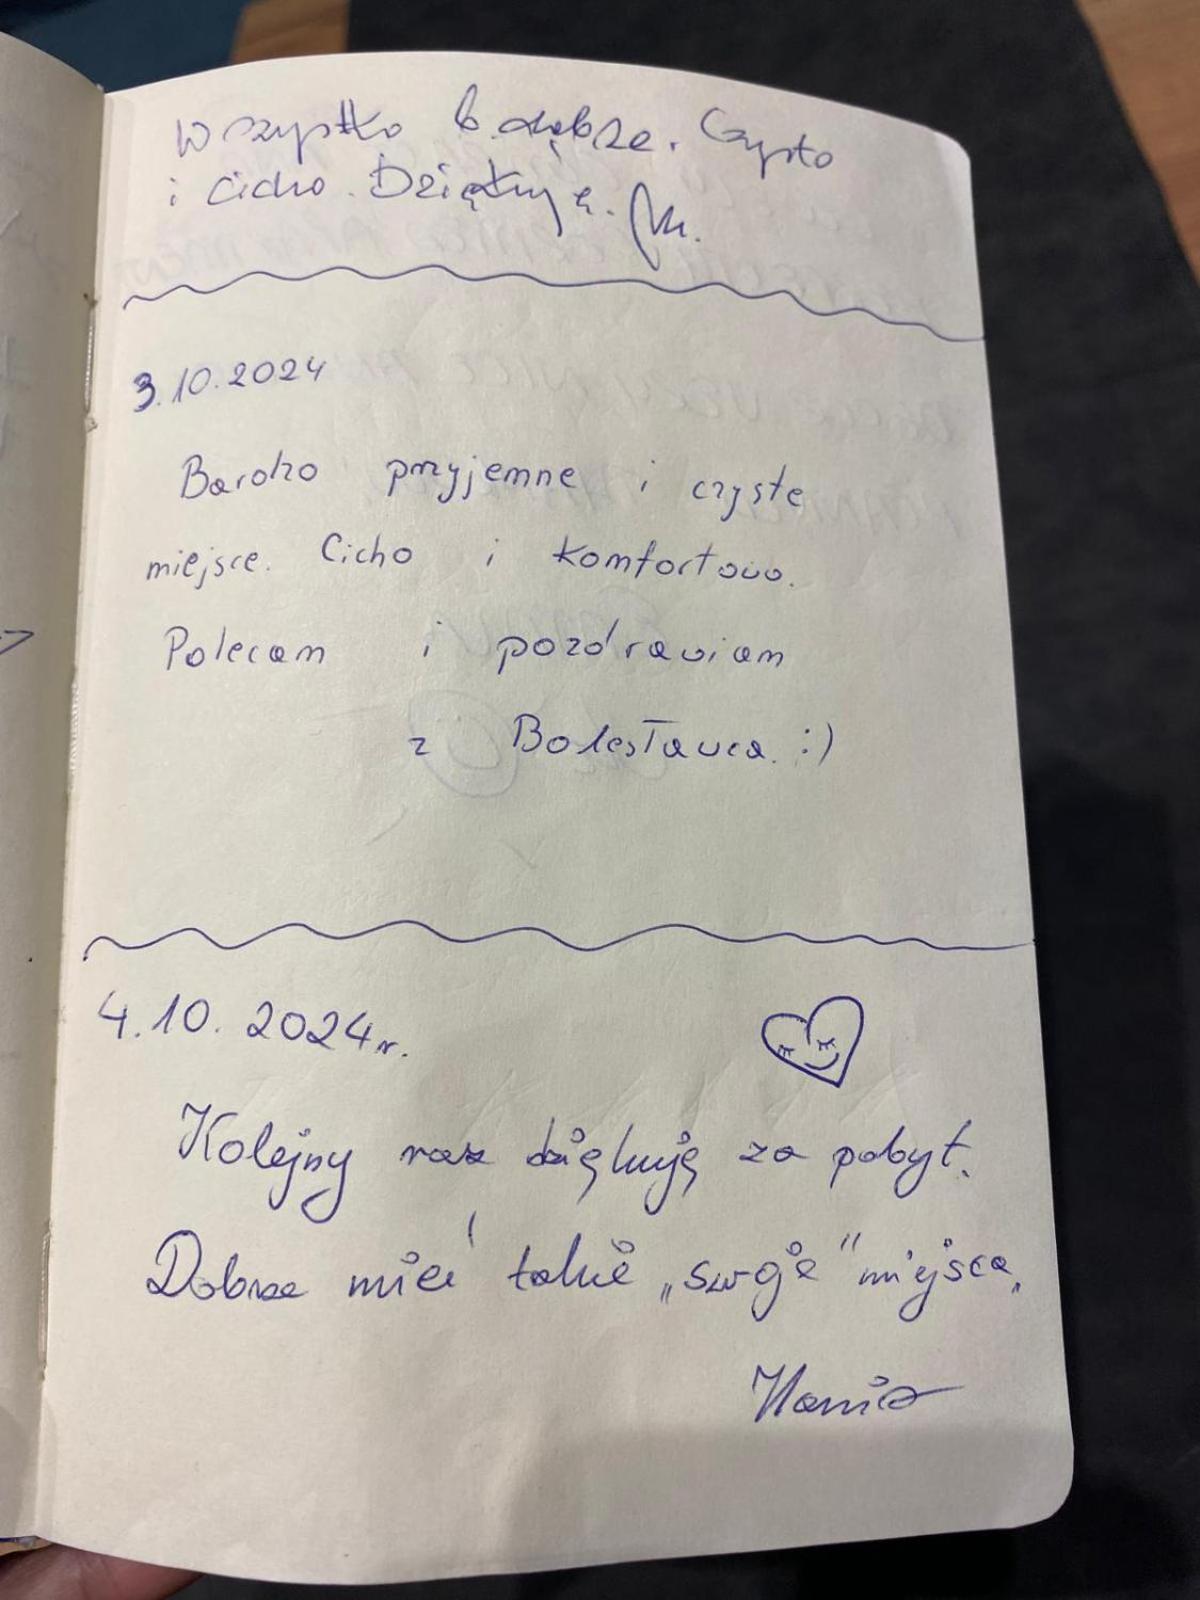 Wszystko b. dobrze. Czysto
i cicho. Dziękuję.
3.10.2024
Bardzo przyjemne i czyste
miejsce. Cicho i komfortowo.
Polecam i pozdrawiam
z Bolesławca. :)
4.10.2024r.
Kolejny raz dziękuję za pobyt.
Dobrze mieć takie „swoje” miejsca.
Hania